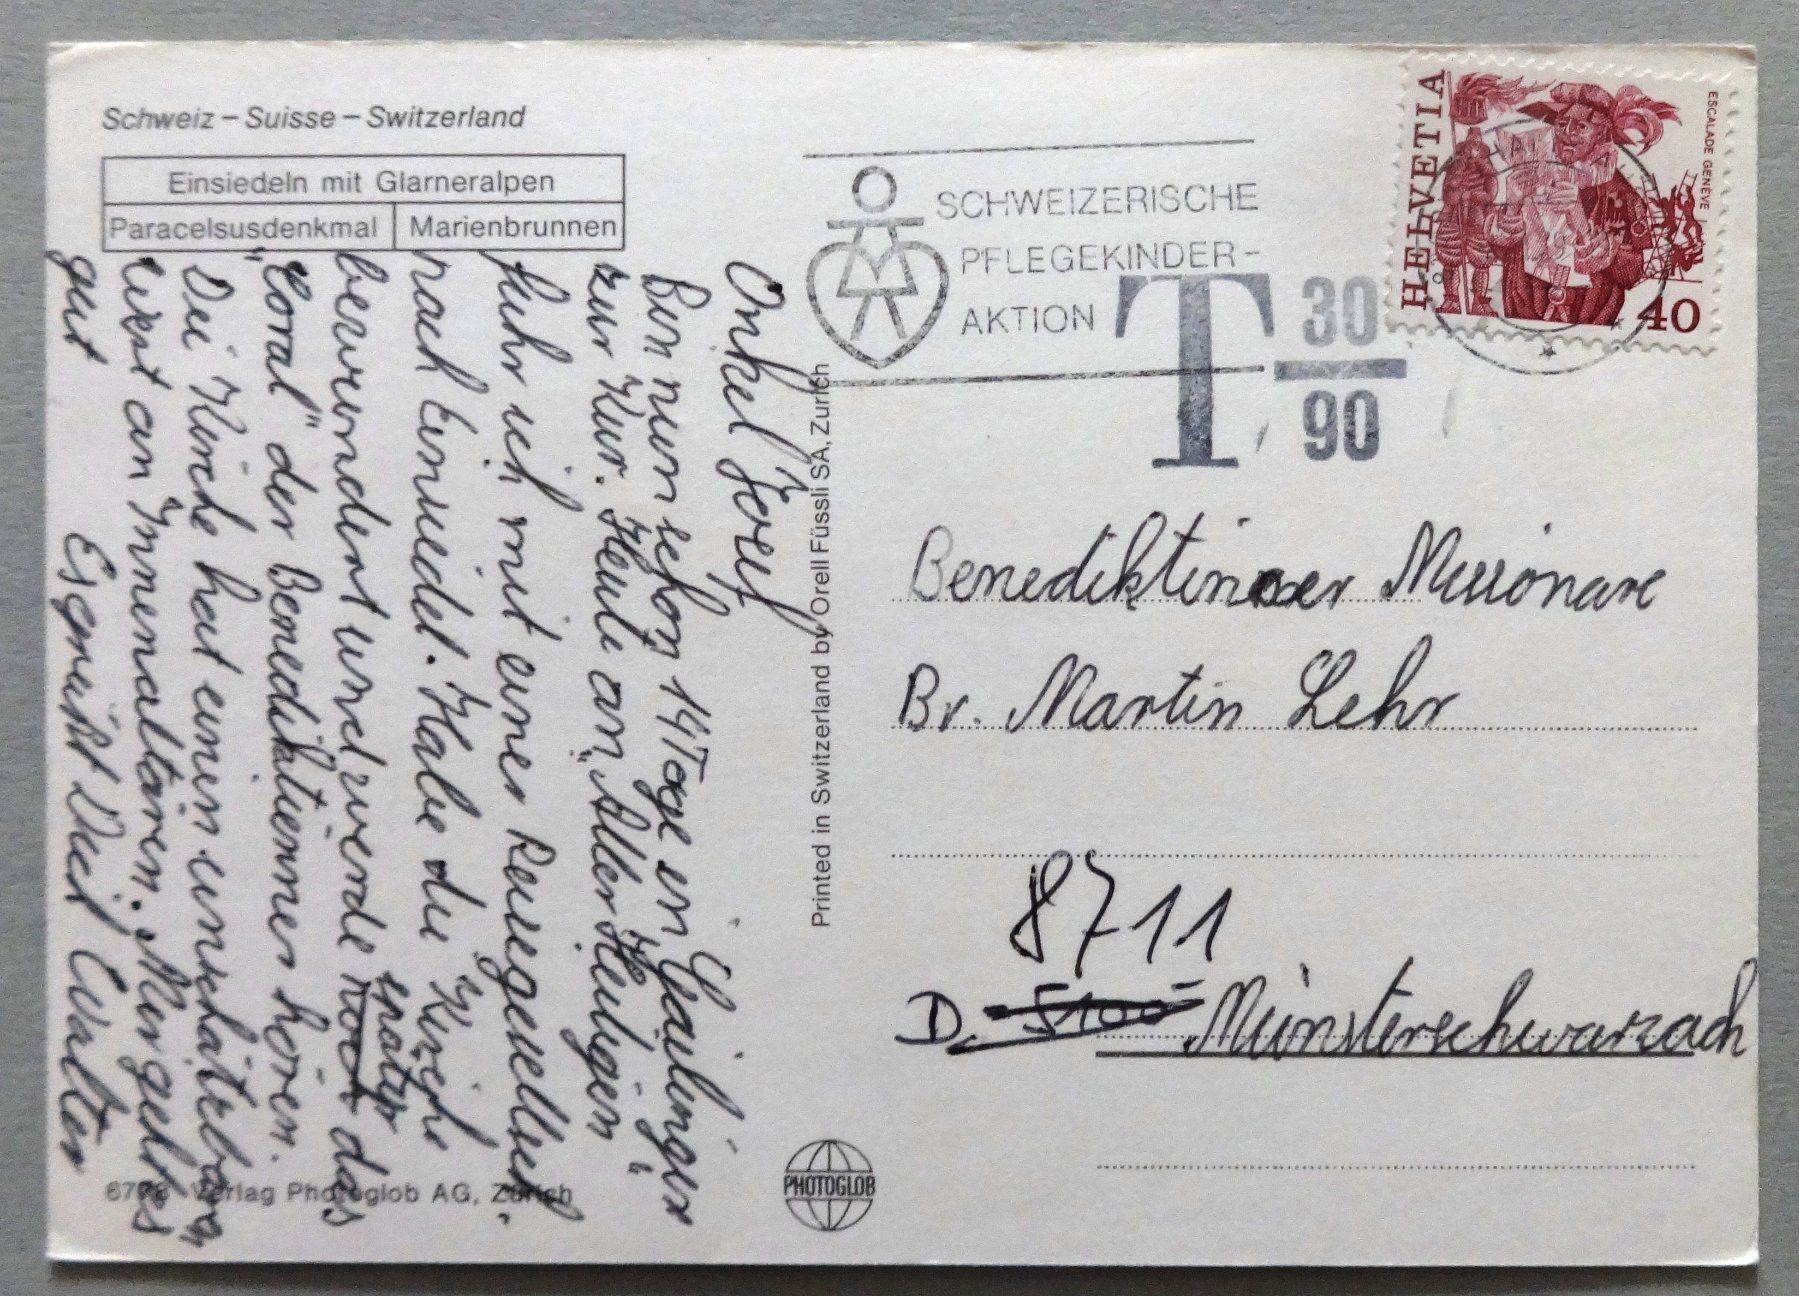 Schweiz – Suisse – Switzerland
Einsiedeln mit Glarneralpen
Paracelsusdenkmal
Marienbrunnen
Onkel Josef
Bin nun schon 14 Tage in Gailingen
zur Kur. Heute an "Aller Heiligen"
fuhr ich mit einer Reisegesellsch.
nach Einsiedel. Habe die Kirche
bewundert und werde noch später das
"Coral" der Benediktienner hören.
Die Kirche hat einen unschätzbaren
Wert an Innenaltären. Mir geht es
gut
Es grüßt Dich Walter
6778 Verlag Photoglob AG, Zürich
Printed in Switzerland by Orell Füssli SA, Zurich
PHOTOGLOB
SCHWEIZERISCHE
PFLEGEKINDER-
AKTION
T 30
90
HELVETIA
ESCALADE GENÈVE
40
Benediktiner Missionare
Br. Martin Lehr
8711
D. 5100 Münsterschwarzach